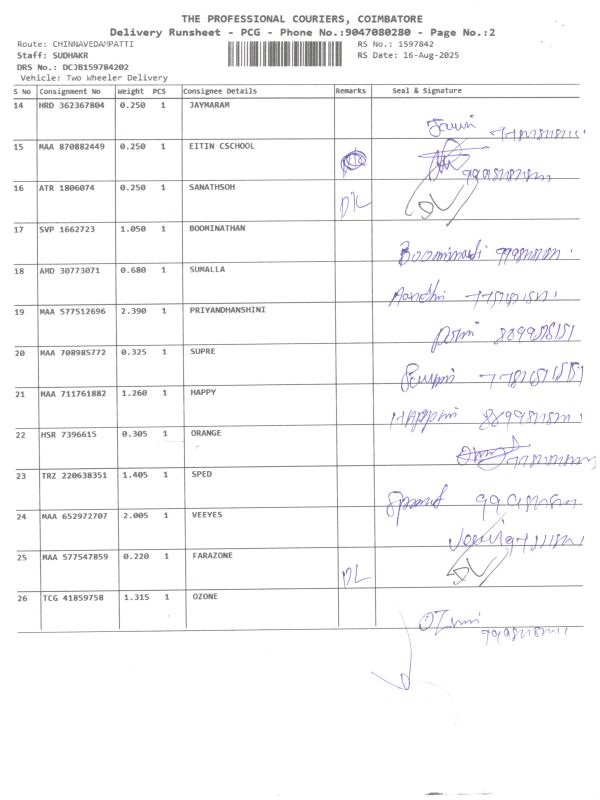 THE PROFESSIONAL COURIERS, COIMBATORE
Delivery Runsheet - PCG - Phone No.:9047080280 - Page No.:2
Route: CHINNAVEDAMPATTI RS No.: 1597842
Staff: SUDHAKR RS Date: 16-Aug-2025
DRS No.: DCJB159784202
Vehicle: Two Wheeler Delivery
S No Consignment No Weight PCS Consignee Details Remarks Seal & Signature
14 HRD 362367804 0.250 1 JAYMARAM
15 MAA 870882449 0.250 1 EITIN CSCHOOL
16 ATR 1806074 0.250 1 SANATHSOH DL DL
17 SVP 1662723 1.050 1 BOOMINATHAN
18 AMD 30773071 0.680 1 SUMALLA
19 MAA 577512696 2.390 1 PRIYANDHANSHINI
20 MAA 708985772 0.325 1 SUPRE
21 MAA 711761882 1.260 1 HAPPY
22 HSR 7396615 0.305 1 ORANGE
23 TRZ 220638351 1.405 1 SPED
24 MAA 652972707 2.005 1 VEEYES
25 MAA 577547859 0.220 1 FARAZONE DL DL
26 TCG 41859758 1.315 1 OZONE